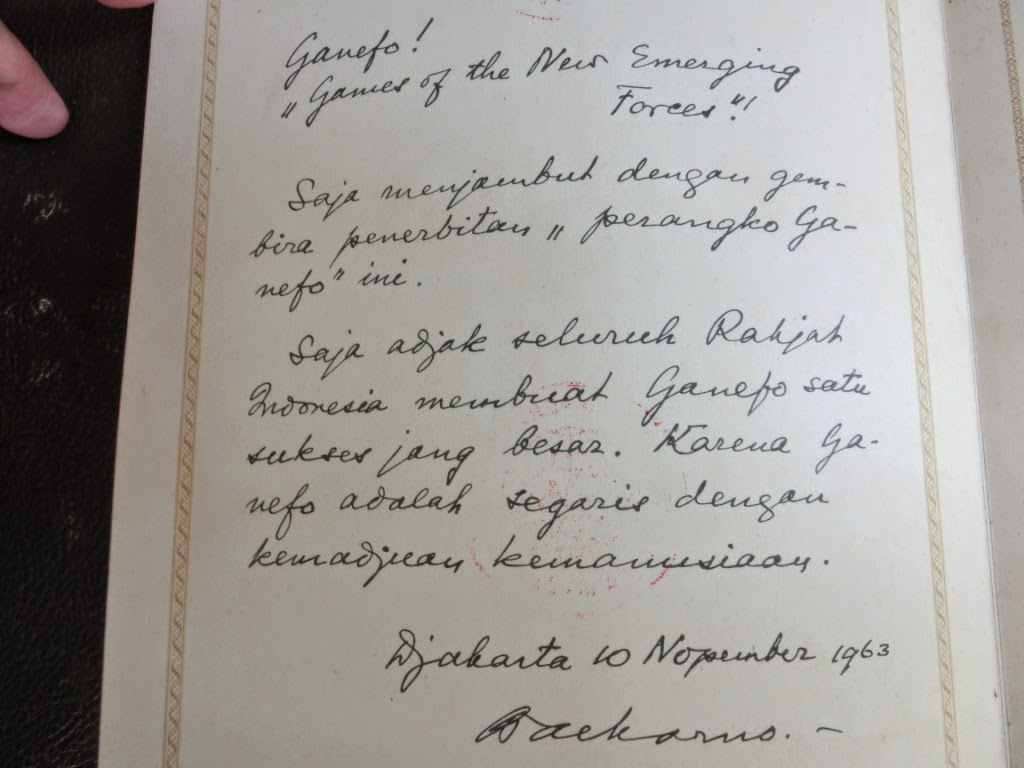 Ganefo!
„Games of the New Emerging
Forces"!
Saja menjambut dengan gem-
bira penerbitan „perangko Ga-
nefo" ini.
Saja adjak seluruh Rakjat
Indonesia membuat Ganefo satu
sukses jang besar. Karena Ga-
nefo adalah segaris dengan
kemadjuan kemanusiaan.
Djakarta 10 Nopember 1963
Soekarno.-